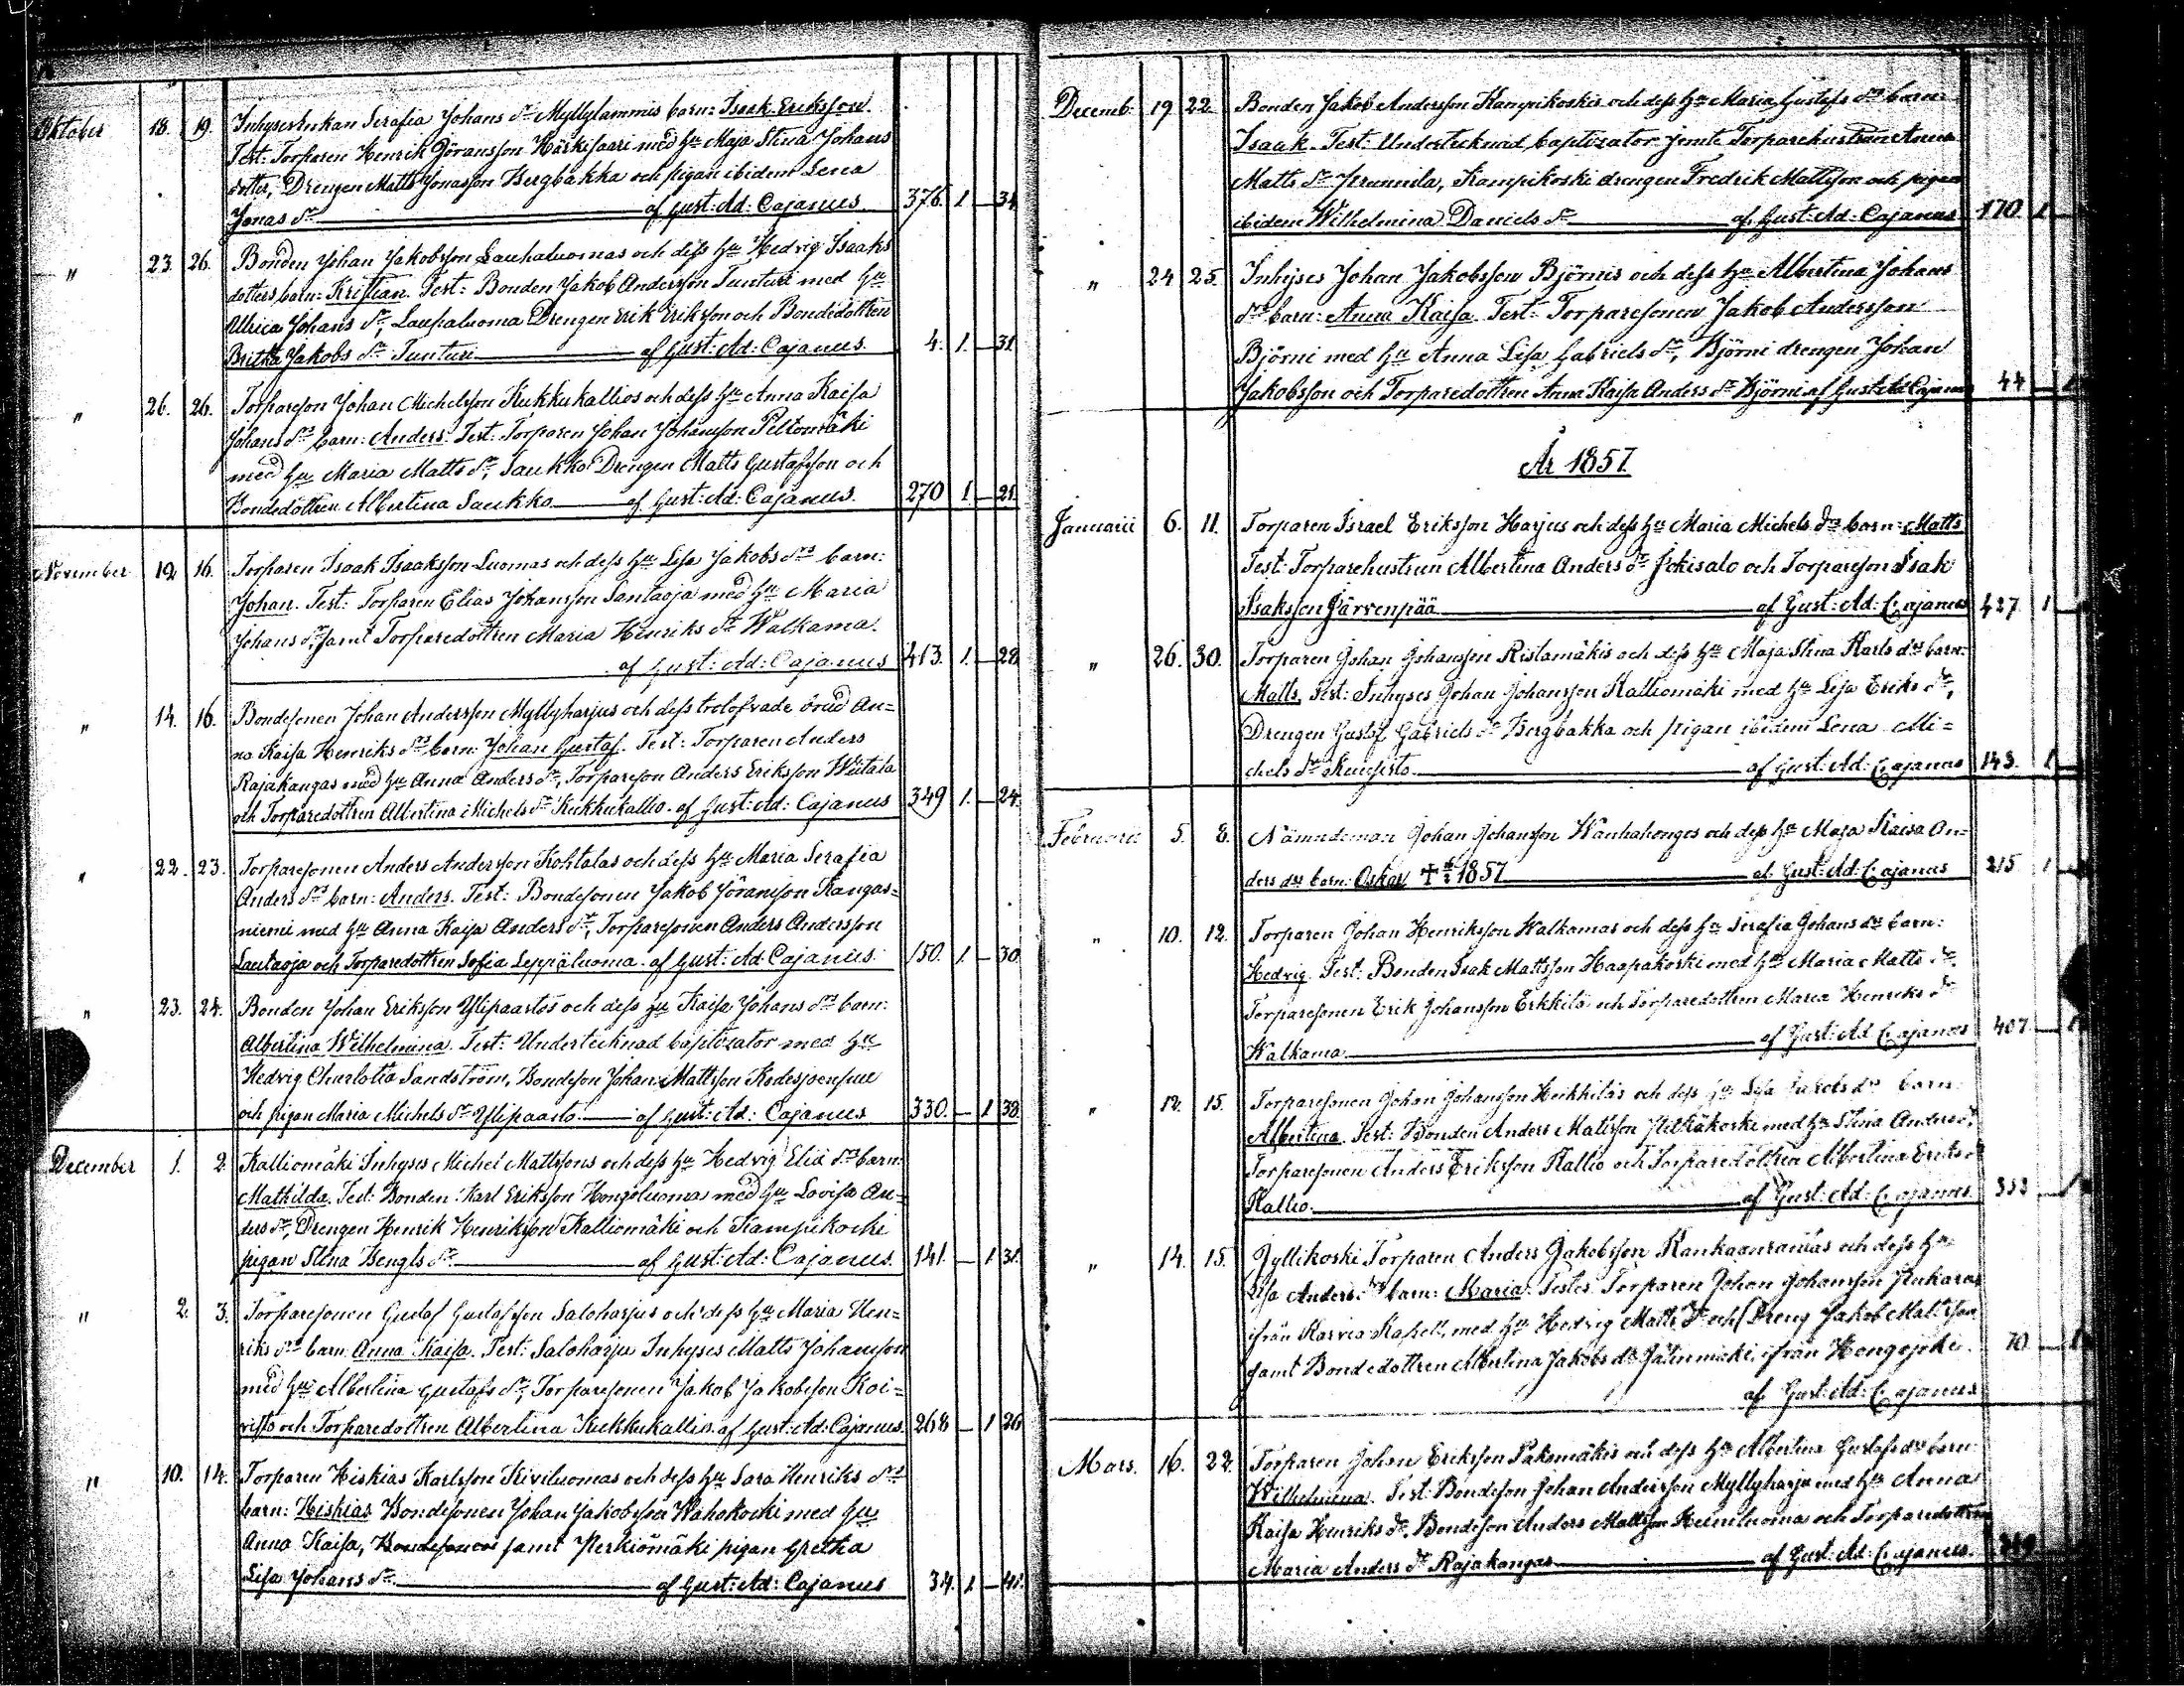 Oktober 18. 19. Inhysesenkan Serafia Johans dr Myllylammis barn: Isaak Eriksson.
Test: Torparen Henrik Göransson Härkisaari med hu Maja Stina Johans
dotter, Drengen Matts Jonasson Bergbakka och pigan ibidem Lena
Jonas dr af Gust: Ad: Cajanus 376. 1 — 34
" 23. 26. Bonden Johan Jakobsson Lauhaluomas och dess hu Hedvig Isaaks
dotters barn: Kristian. Test: Bonden Jakob Andersson Tunturi med hu
Ullrica Johans dr, Drengen Erik Eriksson och Bondedottren
Britha Jakobs dr Tunturi af Gust: Ad: Cajanus. 4. 1. — 31
" 26. 26. Torpareson Johan Michelsson Kukkukallios och dess hu Anna Kaisa
Johans drs barn: Anders. Test: Torparen Johan Johansson Peltomäki
med hu Maria Matts dr, Saukko Drengen Matts Gustafsson och
Bondedottren Albertina Saukko af Gust: Ad: Cajanus. 270 1. — 21
November 12 16. Torparen Isaak Isaaksson Luomas och dess hu Lisa Jakobs drs barn:
Johan. Test: Torparen Elias Johansson Santaoja med hu Maria
Johans dr, samt Torparedottren Maria Henriks dr Walkama.
af Gust: Ad: Cajanus 413. 1. — 28
" 14. 16. Bondesonen Johan Andersson Myllyharjus och dess trolofvade brud An=
na Kaisa Henriks drs barn: Johan Gustaf. Test: Torparen Anders
Rajakangas med hu Anna Anders dr, Torpareson Anders Eriksson Wiitala
och Torparedottren Albertina Michels dr Kukkukallio. af Gust: Ad: Cajanus 349 1. — 24.
" 22. 23. Torparesonen Anders Andersson Kohtalas och dess hu Maria Serafia
Anders drs barn: Anders. Test: Bondesonen Jakob Göransson Kangas=
niemi med hu Anna Kaisa Anders dr, Torparesonen Anders Andersson
Lautaoja och Torparedottren Sofia Leppäluoma. af Gust: Ad: Cajanus. 150. 1 — 30.
" 23. 24. Bonden Johan Eriksson Ylipaastos och dess hu Kaisa Johans drs barn:
Albertina Wilhelmina. Test: Undertecknad baptizator med hu
Hedvig Charlotta Sandström, Bondeson Johan Mattsson
och pigan Maria Michels dr Ylipaasto af Gust: Ad: Cajanus 330. — 1 38.
December 1. 2. Kalliomäki Inhyses Michel Mattssons och dess hu Hedvig Eliæ drs barn:
Mathilda. Test: Bonden Karl Eriksson Hongoluoma med hu Lovisa An=
ders dr, Drengen Henrik Henriksson Kalliomäki och Kampikoski
pigan Stina Bengts dr af Gust: Ad: Cajanus. 141. — 1 31.
" 2. 3. Torparesonen Gustaf Gustafsson Saloharjus och dess hu Maria Hen=
riks drs barn: Anna Kaisa. Test: Saloharju Inhyses Matts Johansson
med hu Albertina Gustafs dr, Torparesonen Jakob Jakobsson Koi=
visto och Torparedottren Albertina Kukkukallio. af Gust: Ad: Cajanus. 268 — 1 26
" 10. 14. Torparen Hiskias Karlsson Kiviluomas och dess hu Sara Henriks drs
barn: Hiskias Bondesonen Johan Jakobsson Wahokoski med hu
Anna Kaisa, Bondesonen samt Yterkiömäki pigan Gretha
Lisa Johans dr af Gust: Ad: Cajanus 34. 1 — 41.
Decemb. 19 22. Bonden Jakob Andersson Kampikoskis och dess hu Maria Gustafs drs barn:
Isaak. Test: Undertecknad baptizator jemte Torparehustrun Anna
Matts dr, Kampikoski drengen Fredrik Mattsson och pigan
ibidem Wilhelmina Daniels dr af Gust: Ad: Cajanus 170 1
" 24 25. Inhyses Johan Jakobsson Björnis och dess hu Albertina Johans
drs barn: Anna Kaisa. Test: Torparesonen Jakob Andersson
Björni med hu Anna Lisa Gabriels dr, Björni drengen Johan
Jakobsson och Torparedottren Anna Kaisa Anders dr Björni af Gust. Ad Cajanus 44 — 1
År 1857.
Januarii 6. 11. Torparen Israel Eriksson Harjus och dess hu Maria Michels drs barn: Matts
Test: Torparehustrun Albertina Anders dr Jokisalo och Torpareson Isak
Isaksson Järvenpää af Gust: Ad: Cajanus 427. 1
" 26. 30. Torparen Johan Johansson Ristamäkis och dess hu Maja Stina Karls drs barn:
Matts. Test: Inhyses Johan Johansson Kalliomäki med hu Lisa Eriks dr,
Drengen Gustaf Gabriels Bergbakka och pigan ibidem Lena Mi=
chels dr af Gust: Ad: Cajanus 143. 1
Februarii 5. 8. Nämndeman Johan Johansson Wanhahonges och dess hu Maja Kaisa An=
ders drs barn: Oskar † 1857 af Gust: Ad: Cajanus 215 1
" 10. 12. Torparen Johan Henriksson Walkamas och dess hu Serafia Johans drs barn:
Hedvig. Test: Bonden Isak Mattsson Haapakoski med hu Maria Matts dr.
Torparesonen Erik Johansson Erkkilä och Torparedottren Maria Henriks dr
Walkama af Gust: Ad Cajanus 407 — 1
" 12. 15. Torparesonen Johan Johansson Heikkilas och dess hu Lisa Jakobs drs barn:
Albertina. Test: Bonden Anders Mattsson med hu Stina Anders dr,
Torparesonen Anders Eriksson Kallio och Torparedottren Albertina Eriks dr
Kallio. af Gust: Ad: Cajanus. 353 — 1
" 14. 15. Jyllikoski Torparen Anders Jakobsson Kankaanrantas och dess hu
Lisa Anders drs barn: Maria. Testes. Torparen Johan Johansson
ifrån Karvia Kapell, med hu Hedvig Matts dr och Dreng Jakob Mattsson
samt Bondedottren Albertina Jakobs dr ifrån Hongojoki. 70 — 1
af Gust: Ad: Cajanus
Mars. 16. 22. Torparen Johan Eriksson Pakomäkis och dess hu Albertina Gustafs drs barn:
Wilhelmina. Test: Bondeson Johan Andersson Myllyharju med hu Anna
Kaisa Henriks dr, Bondeson Anders Mattsson och Torparedottren
Maria Anders dr Rajakangas af Gust: Ad: Cajanus.